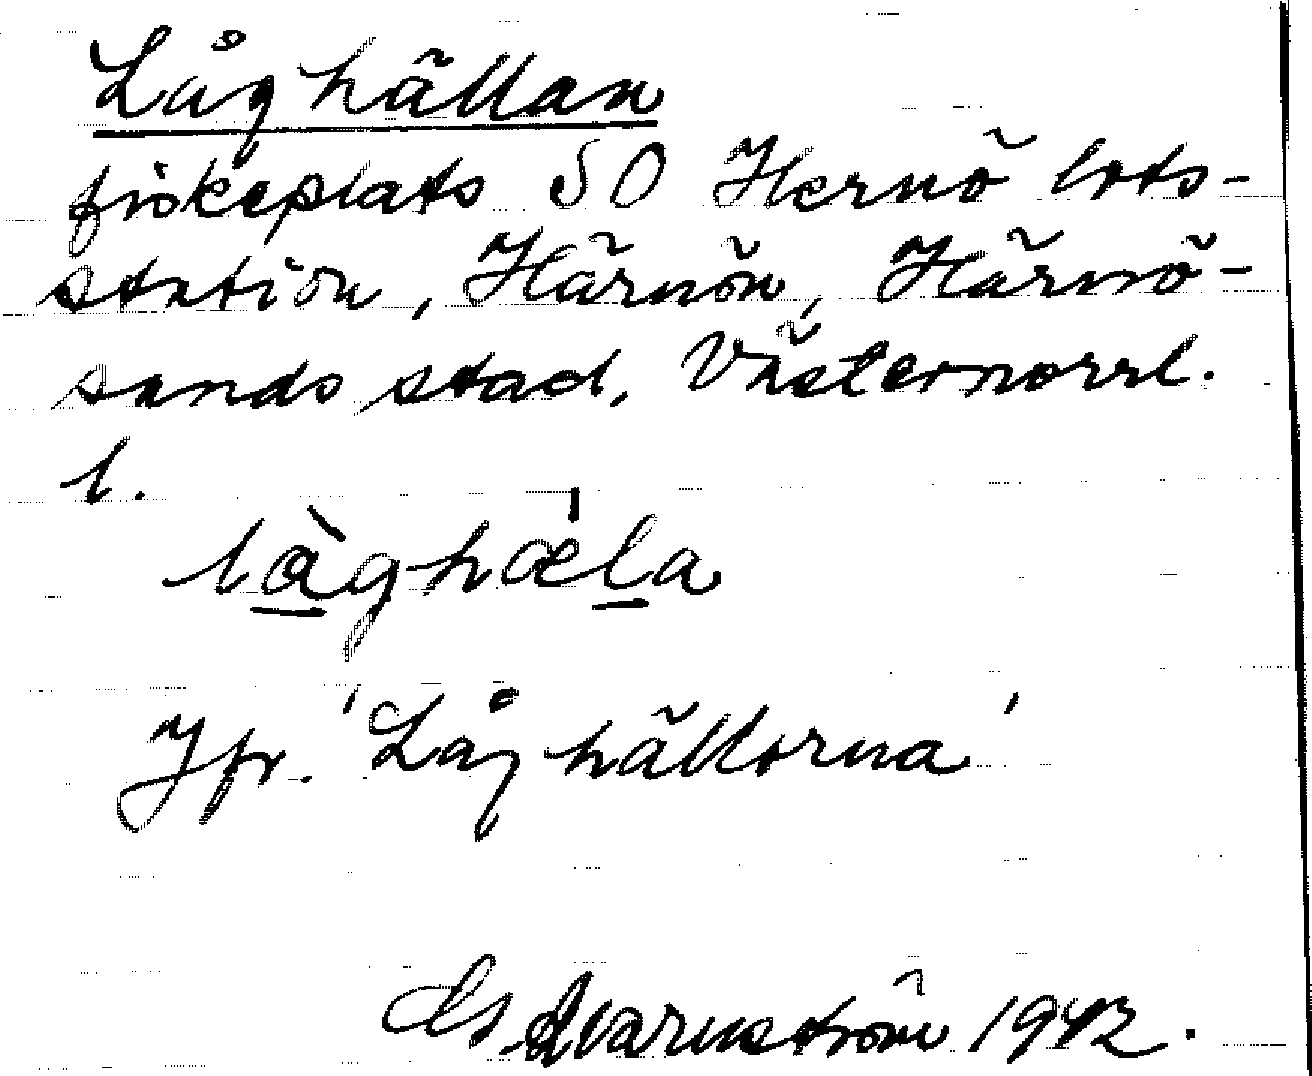 Låghällan
fiskeplats SO Hernö lots-
station, Härnön, Härnö-
sands stad, Västernorrl.
l.
làghæla
Jfr. 'Låghällorna'
Qvarnström 1942.